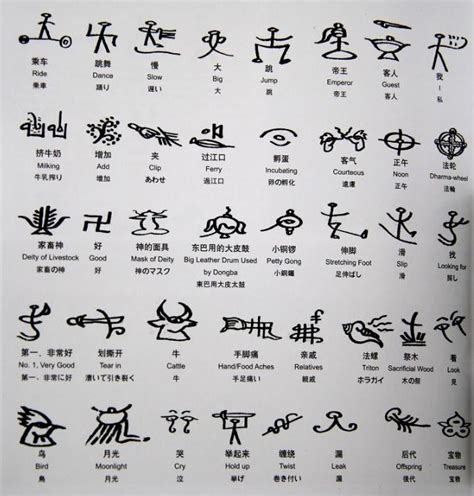 乘车 跳舞 慢 大 跳 帝王 客人 我
Ride Dance Slow Big Jump Emperor Guest I
乗車 踊り 遅い 大 跳 帝王 客人 私
挤牛奶 增加 夹 过江口 孵蛋 客气 正午 法轮
Milking Add Clip Ferry Incubating Courteous Noon Dharma-wheel
牛乳搾り 増加 あわせ 過江口 卵の孵化 遠慮 正午 法輪
家畜神 好 神的面具 东巴用的大皮鼓 小铜锣 伸脚 滑 找
Deity of Livestock Good Mask of Deity Big Leather Drum Used Petty Gong Stretching Foot Slip Looking for
家畜の神 好 神のマスク by Dongba 小銅鑼 足伸ばし 滑 探し
東巴用大皮太鼓
第一．非常好 划撕开 牛 手脚痛 亲戚 法螺 祭木 看
No. 1, Very Good Tear in Cattle Hand/Food Aches Relatives Triton Sacrificial Wood Look
第一．非常に好 漕いて引き裂く 牛 手足痛い 親戚 ホラガイ 木の祭 見
鸟 月光 哭 举起来 缠绕 漏 后代 宝物
Bird Moonlight Cry Hold up Twist Leak Offspring Treasure
鳥 月光 泣 挙げる 巻き付い 漏 後代 宝物